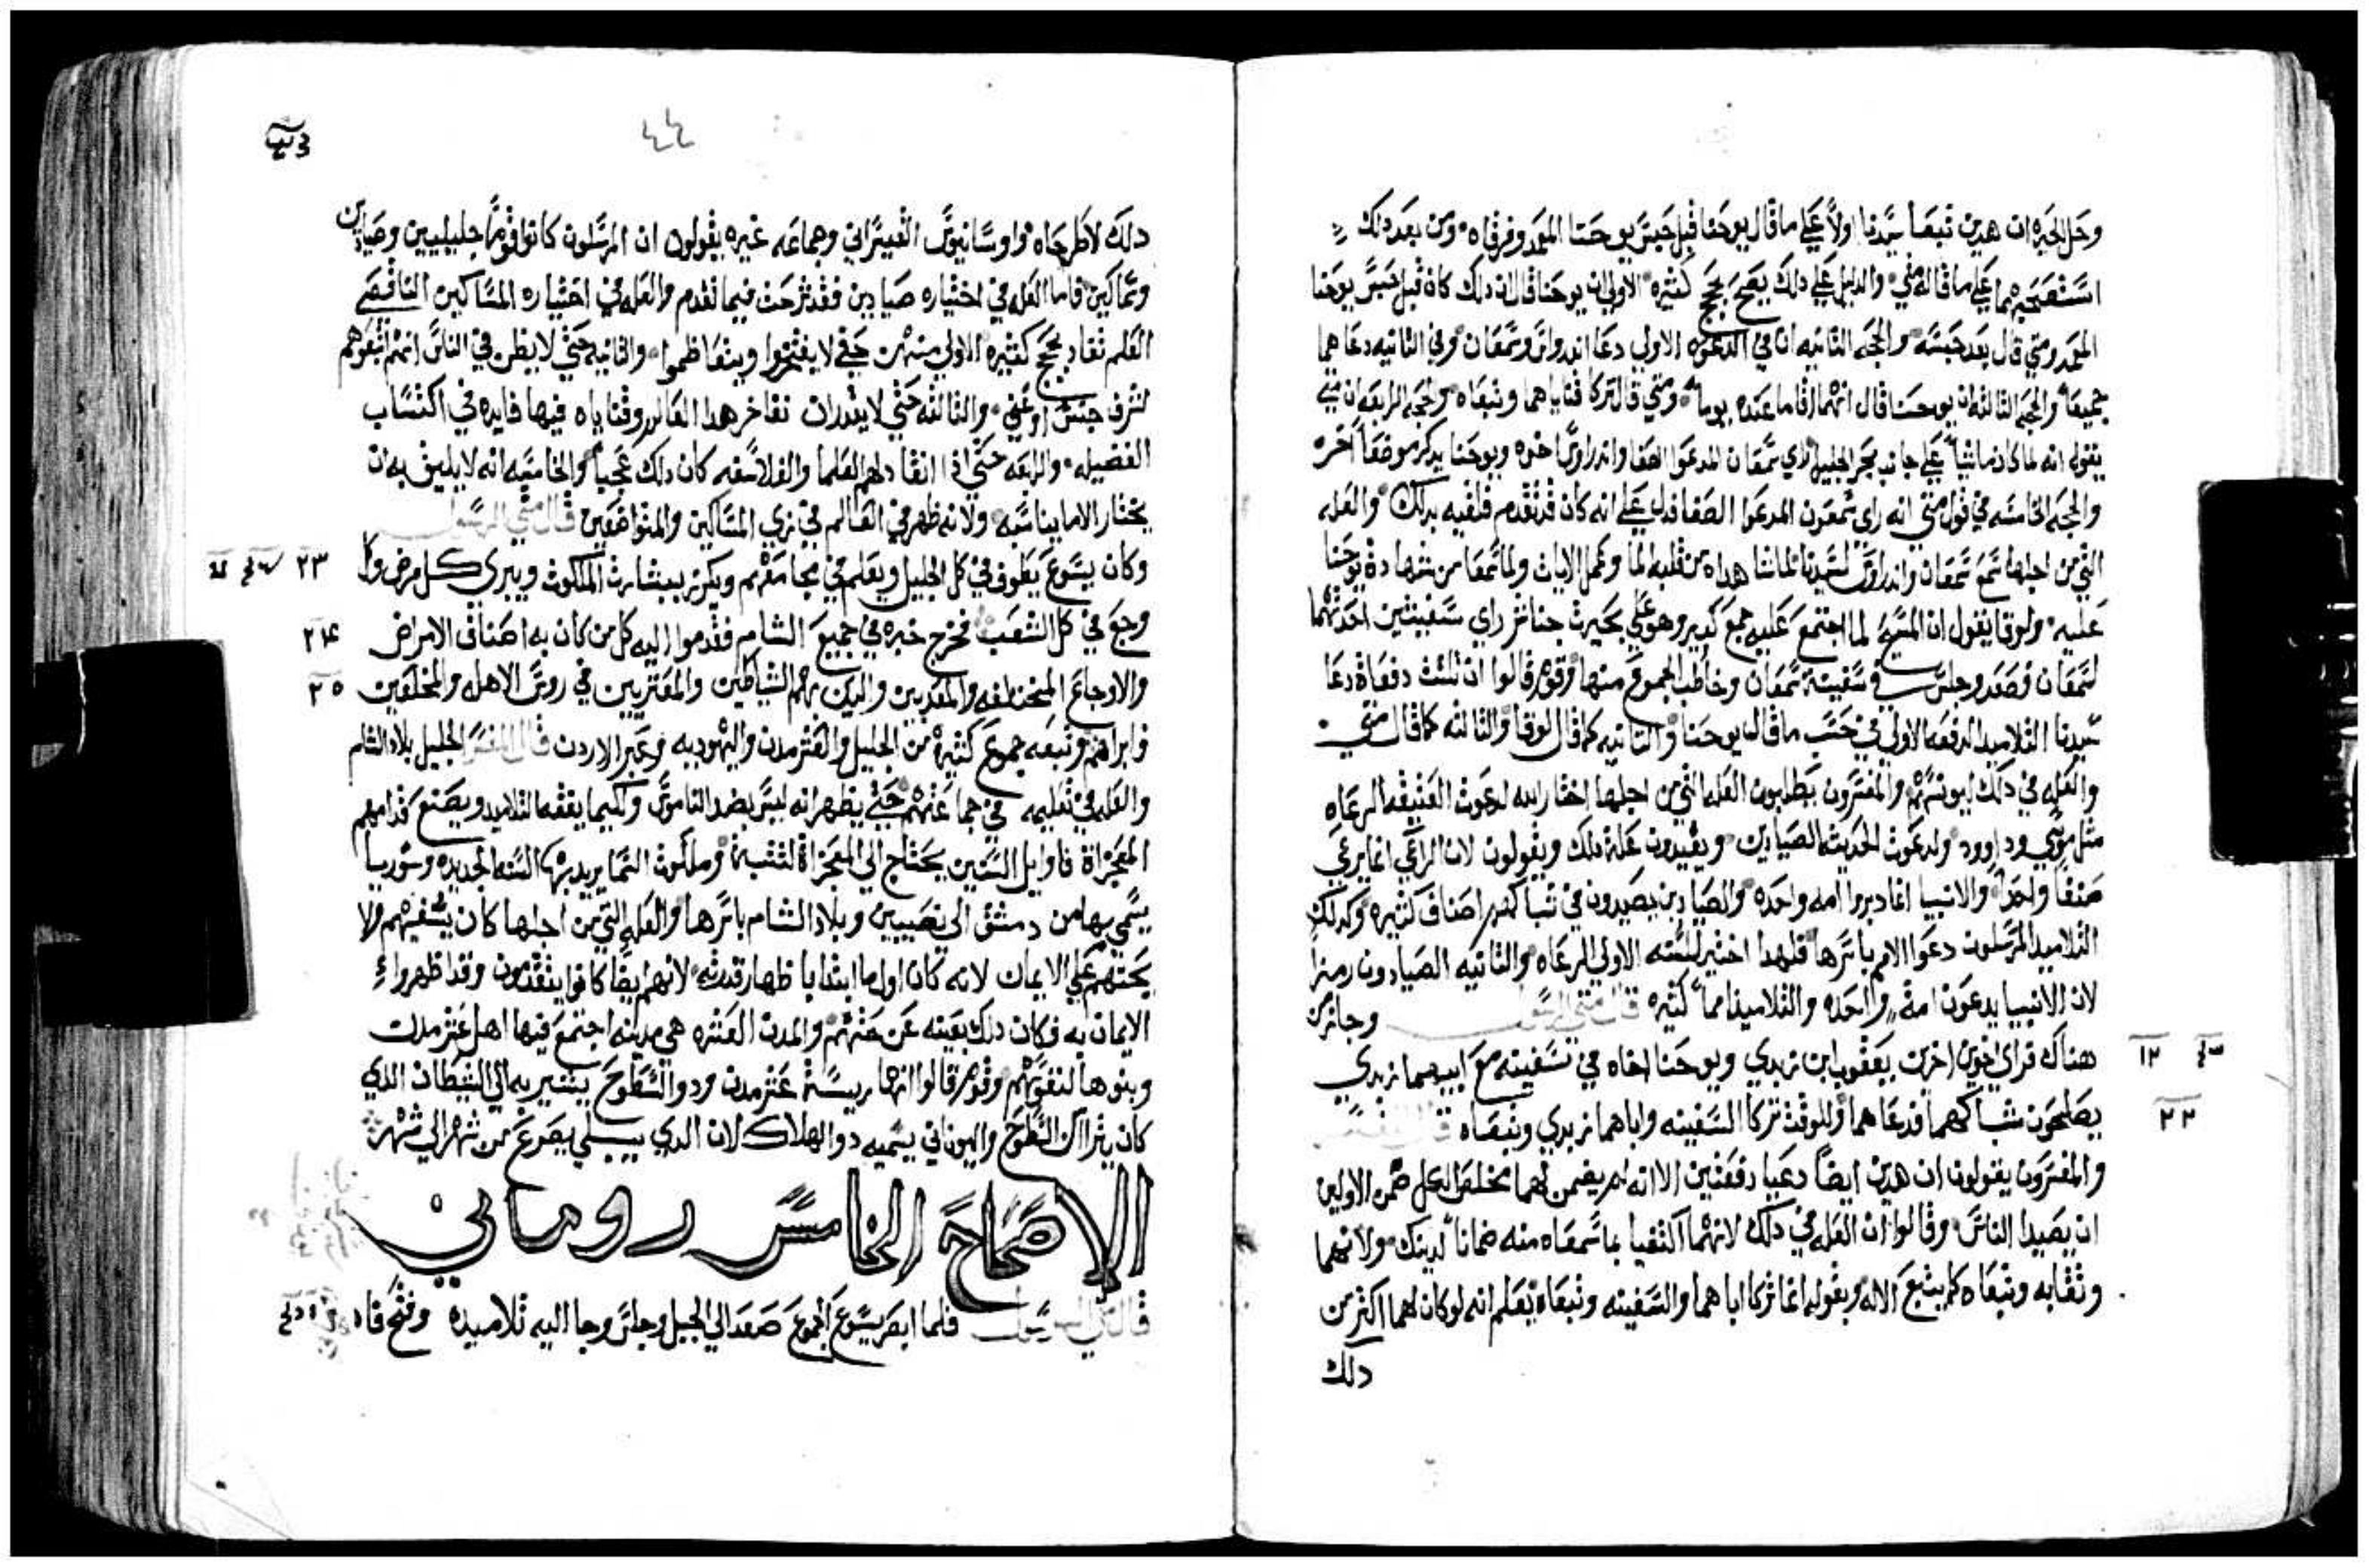 وحل الحيره ان هدين تبعا سيدنا اولاً علي ما قال يوحنا قبل حبس يوحنا المعمد وفرقاه ومن بعد دلك
استصحبهما علي ما قاله متي والدليل علي دلك يصح بحجج كثيره الاولي ان يوحنا قال ان دلك كان قبل حبس يوحنا
المعمد ومتي قال بعد حبسه والحجه الثانيه ان في الدعوه الاولي دعا اندراوس وسمعان وفي الثانيه دعاهما
جميعاً والحجه الثالثه ان يوحنا قال انهما اقاما عنده يوما ومتي قال تركا فناياهما وتبعاه والحجه الرابعه ان متي
يقول انه لما كان ماشياً علي جانب بحر الجليل راي سمعان المدعوا الصفا واندراوس اخوه ويوحنا يدكر موضعاً اخر
والحجه الخامسه في قول متي انه راي شمعون المدعوا الصفا فدل علي انه كان قد تقدم فلقبه بدلك والعله
التي من اجلها تبع سمعان واندراوس لسيدنا لما شا هداه من قلبه الما وعمل الايات ولما سمعا من شهادة يوحنا
عليه ولوقا يقول ان المسيح لما اجتمع عليه جمع كبير وهو علي بحيرت جناشر راي سفينتين احدتهما
لسمعان فصعد وجلس في سفينة سمعان وخاطب الجموع منها وقوم قالوا ان ثلث دفعاة دعا
سيدنا التلاميد الدفعه الاولي في حسب ما قال يوحنا والثانيه كما قال لوقا والثالثه كما قال متي
والعله في دلك ليونسهم والمفسرون يطلبون العله التي من اجلها اختار الله لدعوت العتيقه الرعاه
مثل موسي وداوود ولدعوت الحديثه الصيادين ويفيدون علة دلك ويقولون لان الراعي انما يرعي
صنفاً واحداً والانبيا انما دبروا امه واحده والصيادين يصيدون في شباكهم اصناف كثيره وكدلك
التلاميد المرسلون دعوا الامم باسرها فلهدا اختير للسنه الاولي الرعاه والثانيه الصيادون رمزاً
لان الانبيا يدعون امة واحده والتلاميد امماً كثيره قال متي الرسول وجاز من
١٢ هناك فراي اخوين اخرين يعقوب ابن زبدي ويوحنا اخاه في سفينته مع ابيهما زبدي
٢٢ يصلحون شباكهما فدعاهما وللوقت تركا السفينه واباهما زبدي وتبعاه قال المفسر
والمفسرون يقولون ان هدين ايضاً دعيا دفعتين الا انه لم يضمن لهما ضمن الاولين
ان يصيدا الناس وقالوا ان العله في دلك لانهما اكتفيا بما سمعاه منه ضماناً لدينك ولانهما
وثقا به وتبعاه كما يتبع الاله ويقوله انما تركا اباهما والسفينه وتبعاه يعلم انه لو كان لهما اكثر من
دلك
٤٤
دلك لاطرحاه واوسانيوس القيسراني وجماعه غيره يقولون ان المرسلون كانوا قوماً جليليين وصيادين
وسماكين فاما العله في اختياره صيادين فقد شرحت فيما تقدم والعله في اختياره المساكين الناقصي
العلم تفاد بحجج كثيره الاولي منهن حتي لا يفتخروا ويتعاظموا والثانيه حتي لا يظن في الناس انهم اتبعوهم
لشرف جنس او غني والثالثه حتي لا يقدران تفاخر هدا العالم وقناياه فيها فايده في اكتساب
الفضيله والرابعه حتي ادا انقاد لهم العلما والفلاسفه كان دلك عجيباً والخامسه انه لا يليق به ان
يختار الا ما يناسبه ولانه ظهر في العالم في زي المساكين والمتواضعين قال متي الرسول
وكان يسوع يطوف في كل الجليل ويعلم في مجامعهم ويكرز ببشارت الملكوت ويبري كل مرض وكل ٢٣
وجع في كل الشعب فخرج خبره في جميع الشام فقدموا اليه كل من كان به اصناف الامراض ٢٤
والاوجاع المختلفه والمعدبين والدين بهم الشياطين والمعتريين في روس الاهله والمخلعين ٢٥
فابراهم وتبعه جموع كثيرة من الجليل والعشر مدن واليهوديه وعبر الاردن قال المفسر الجليل بلاد الشام
والعله في تعليمه في جماعتهم حتي يظهر انه ليس بضد الناموس ولكيما يفقه التلاميد ويصنع قدامهم
المعجزاة فاوايل السنين يحتاج الي المعجزاة لتثبة وملكوت السما يريد بها السنه الجديده وسوريا
يسمي بها من دمشق الي نصيبين وبلاد الشام باسرها والعله التي من اجلها كان يشفيهم ولا
يحثهم علي الايمان لانه كان اول ما ابتدا باظهار قدرته لانهم ايضاً كانوا يتقدمون وقد اظهروا
الايمان به فكان دلك بعينه عن حثهم والمدن العشره هي مدينه اجتمع فيها اهل عشر مدن
وبنوها لتقويهم وقوم قالوا انها ريسة عشر مدن ودو السطوح يشير به الي الشيطان الدي
كان يترااا السطوح واليوناني يسميه دو الهلاك لان الدي يبتلي يصرع من شهر الي شهر
الاصحاح الخامس روماني
قال متي الرسول فلما ابصر يسوع الجموع صعد الي الجبل وجلس وجا اليه تلاميده وفتح فاه